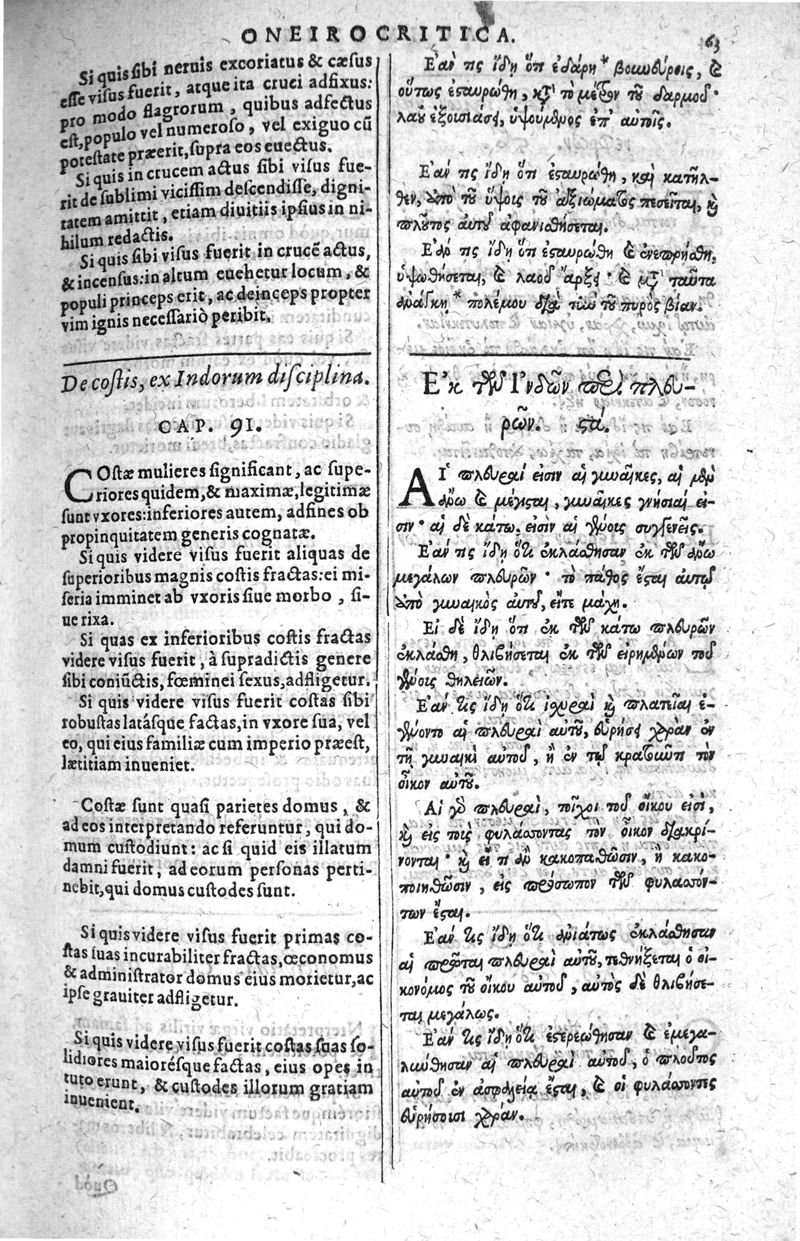 ONEIROCRITICA.
63
Si quis sibi neruis excoriatus & cæsus
esse visus fuerit, atque ita cruci adfixus:
pro modo flagrorum, quibus adfectus
est, populo vel numeroso, vel exiguo cũ
potestate præerit, supra eos euectus.
Si quis in crucem actus sibi visus fue-
rit de sublimi vicissim descendisse, digni-
tatem amittit, etiam diuitiis ipsius in ni-
hilum redactis.
Si quis sibi visus fuerit in crucẽ actus,
& incensus: in altum euehetur locum, &
populi princeps erit, ac deinceps propter
vim ignis necessariò peribit.
De costis, ex Indorum disciplina.
CAP. 91.
COstæ mulieres significant, ac supe-
riores quidem, & maximæ, legitimæ
sunt vxores: inferiores autem, adfines ob
propinquitatem generis cognatæ.
Si quis videre visus fuerit aliquas de
superioribus magnis costis fractas: ei mi-
seria imminet ab vxoris siue morbo, si-
ue rixa.
Si quas ex inferioribus costis fractas
videre visus fuerit, à supradictis genere
sibi coniũctis, fœminei sexus, adfligetur.
Si quis videre visus fuerit costas sibi
robustas latásque factas, in vxore sua, vel
eo, qui eius familiæ cum imperio præest,
lætitiam inueniet.
Costæ sunt quasi parietes domus, &
ad eos interpretando referuntur, qui do-
mum custodiunt: ac si quid eis illatum
damni fuerit, ad eorum personas perti-
nebit, qui domus custodes sunt.
Si quis videre visus fuerit primas co-
stas suas incurabiliter fractas, œconomus
& administrator domus eius morietur, ac
ipse grauiter adfligetur.
Si quis videre visus fuerit costas suas so-
lidiores maiorésque factas, eius opes in
tuto erunt, & custodes illorum gratiam
inuenient.
Ἐάν τις ἴδῃ ὅτι ἐδάρη * βουνεύροις, καὶ
οὕτως ἐσταυρώθη, κατὰ τὸ μέτρον τοῦ δαρμοῦ
λαοῦ ἐξουσιάσει, ὑψούμενος ἐπ' αὐτοῖς.
Ἐάν τις ἴδῃ ὅτι ἐσταυρώθη, καὶ κατῆλ-
θεν, ἀπὸ τοῦ ὕψους τοῦ ἀξιώματος πεσεῖται, καὶ
πλοῦτος αὐτοῦ ἀφανισθήσεται.
Ἐάν τις ἴδῃ ὅτι ἐσταυρώθη καὶ ἀνεπρήσθη,
ὑψωθήσεται, καὶ λαοῦ ἄρξει· καὶ μετὰ ταῦτα
ἀνάγκη * πολέμου διὰ τὴν τοῦ πυρὸς βίαν.
Ἐκ τῶν Ἰνδῶν περὶ πλευ-
ρῶν. ϟά.
ΑΙ πλευραί εἰσιν αἱ γυναῖκες, αἱ μὲν
ἄνω καὶ μέγισται, γυναῖκες γνήσιαί εἰ-
σιν· αἱ δὲ κάτω. εἰσὶν αἱ γένους συγγενεῖς.
Ἐάν τις ἴδῃ ὅτι ἐκλάσθησαν ἐκ τῶν ἄνω
μεγάλων πλευρῶν· τὸ πάθος ἔσται αὐτῷ
ἀπὸ γυναικὸς αὐτοῦ, εἴτε μάχη.
Εἰ δὲ ἴδῃ ὅτι ἐκ τῶν κάτω πλευρῶν
ἐκλάσθη, θλιβήσεται ἐκ τῶν εἰρημένων τοῦ
γένους θηλειῶν.
Ἐάν τις ἴδῃ ὅτι ἰσχυραὶ καὶ πλατεῖαι ἐ-
γένοντο αἱ πλευραὶ αὐτοῦ, εὑρήσει χαρὰν ἐν
τῇ γυναικὶ αὐτοῦ, ἢ ἐν τῷ κρατοῦντι τὸν
οἶκον αὐτοῦ.
Αἱ γὰρ πλευραὶ, τοῖχοι τοῦ οἴκου εἰσὶ,
καὶ εἰς τοὺς φυλάσσοντας τὸν οἶκον διακρί-
νονται· καὶ εἴ τι ἂν κακοπαθῶσιν, ἢ κακο-
ποιηθῶσιν, εἰς πρόσωπον τῶν φυλασσόν-
των ἔσται.
Ἐάν τις ἴδῃ ὅτι ἀνιάτως ἐκλάσθησαν
αἱ πρῶται πλευραὶ αὐτοῦ, τεθνήξεται ὁ οἰ-
κονόμος τοῦ οἴκου αὐτοῦ, αὐτὸς δὲ θλιβήσε-
ται μεγάλως.
Ἐάν τις ἴδῃ ὅτι ἐστερεώθησαν καὶ ἐμεγα-
λύνθησαν αἱ πλευραὶ αὐτοῦ, ὁ πλοῦτος
αὐτοῦ ἐν ἀσφαλείᾳ ἔσται, καὶ οἱ φυλάσσοντες
εὑρήσουσι χαράν.